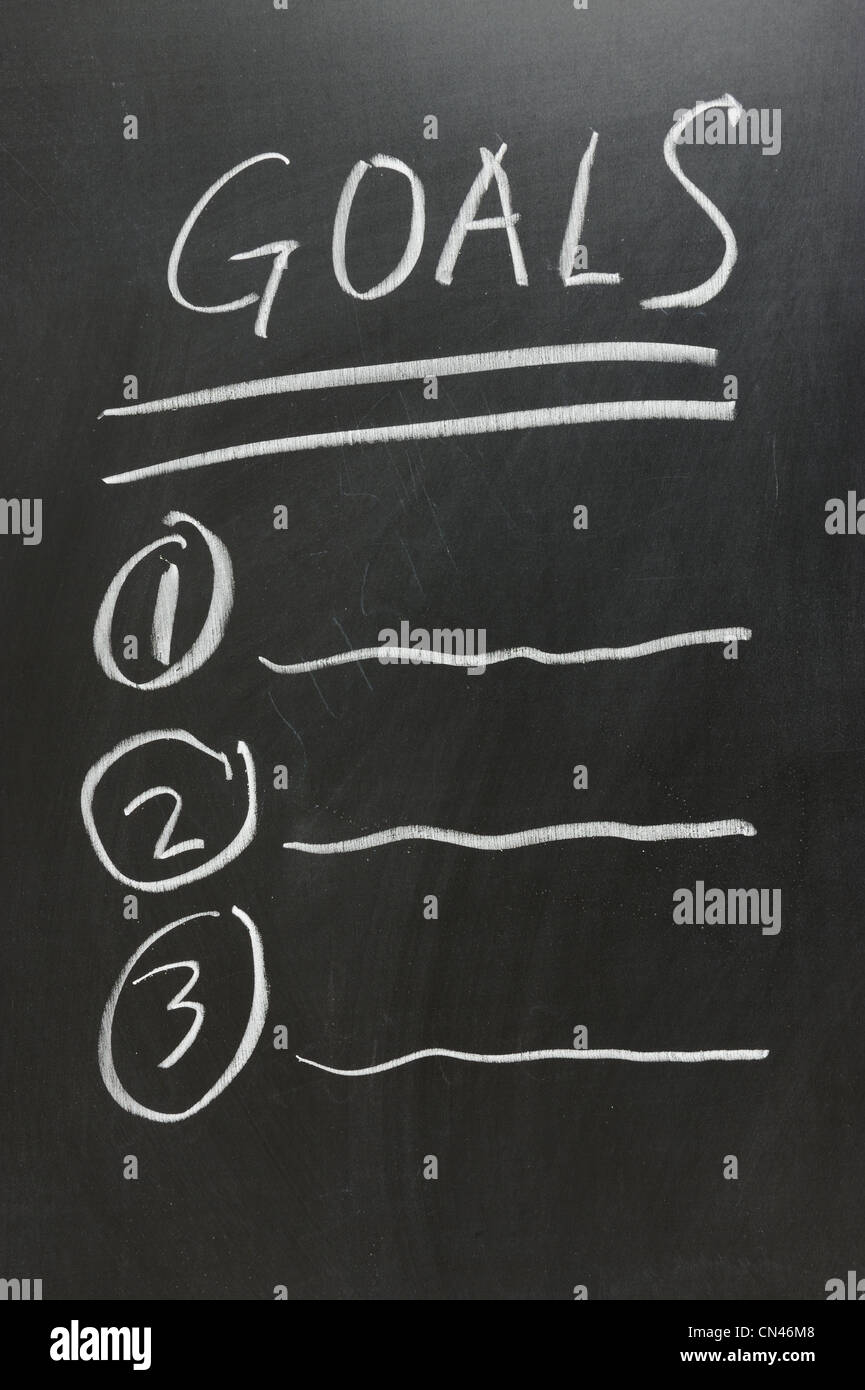 GOALS
1
2
3
alamy
alamy
a alamy
Image ID: CN46M8
www.alamy.com